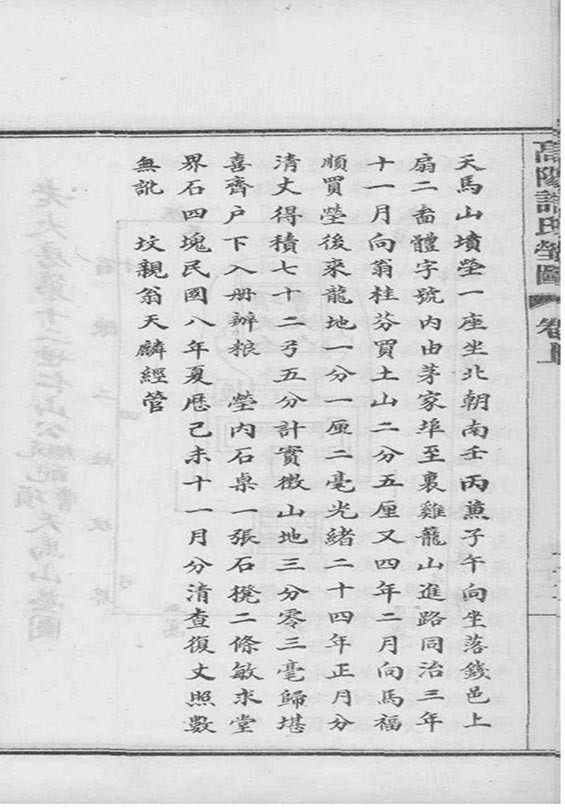 高陽許氏塋圖 卷上
天馬山墳塋一座坐北朝南壬丙兼子午向坐落錢邑上
扇二啚體字號內由茅家埠至裏雞籠山進路同治三年
十一月向翁桂芬買土山二分五厘又四年二月向馬福
順買塋後來龍地一分一厘二毫光緒二十四年正月分
清丈得積七十二弓五分計實徵山地三分零三毫歸堪
喜齋户下入册辦粮 塋內石桌一張石櫈二條敏求堂
界石四塊民國八年夏厯己未十一月分清查復丈照數
無訛 坟親翁天麟經管